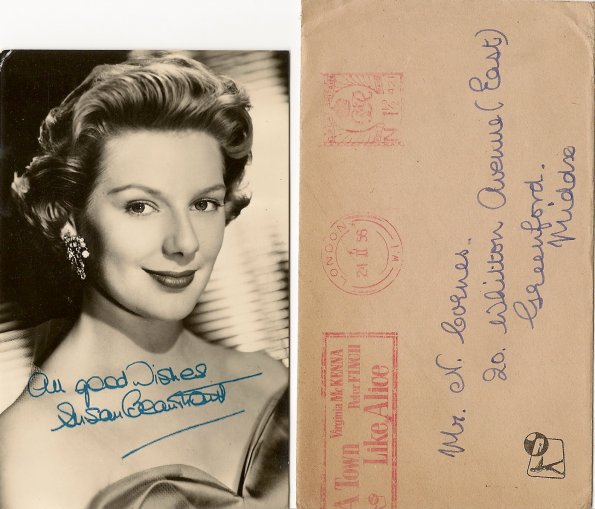 All good Wishes
Susan Beaumont
A Town
Like Alice
Virginia McKENNA
Peter FINCH
LONDON
W.1
24 II 56
Mr. N. Cornes.
20. Whitton Avenue (East)
Greenford.
Middx